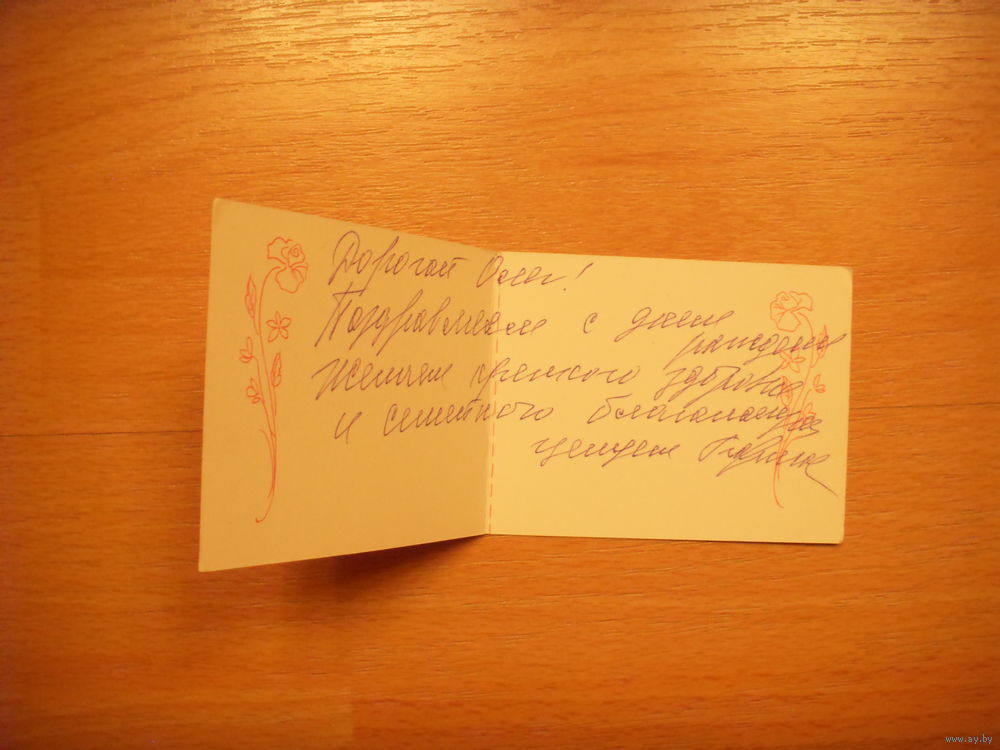 Дорогой Олег!
Поздравляем с днем
рождения
Желаем крепкого здоровья
и семейного благополучия
целуем
www.ay.by